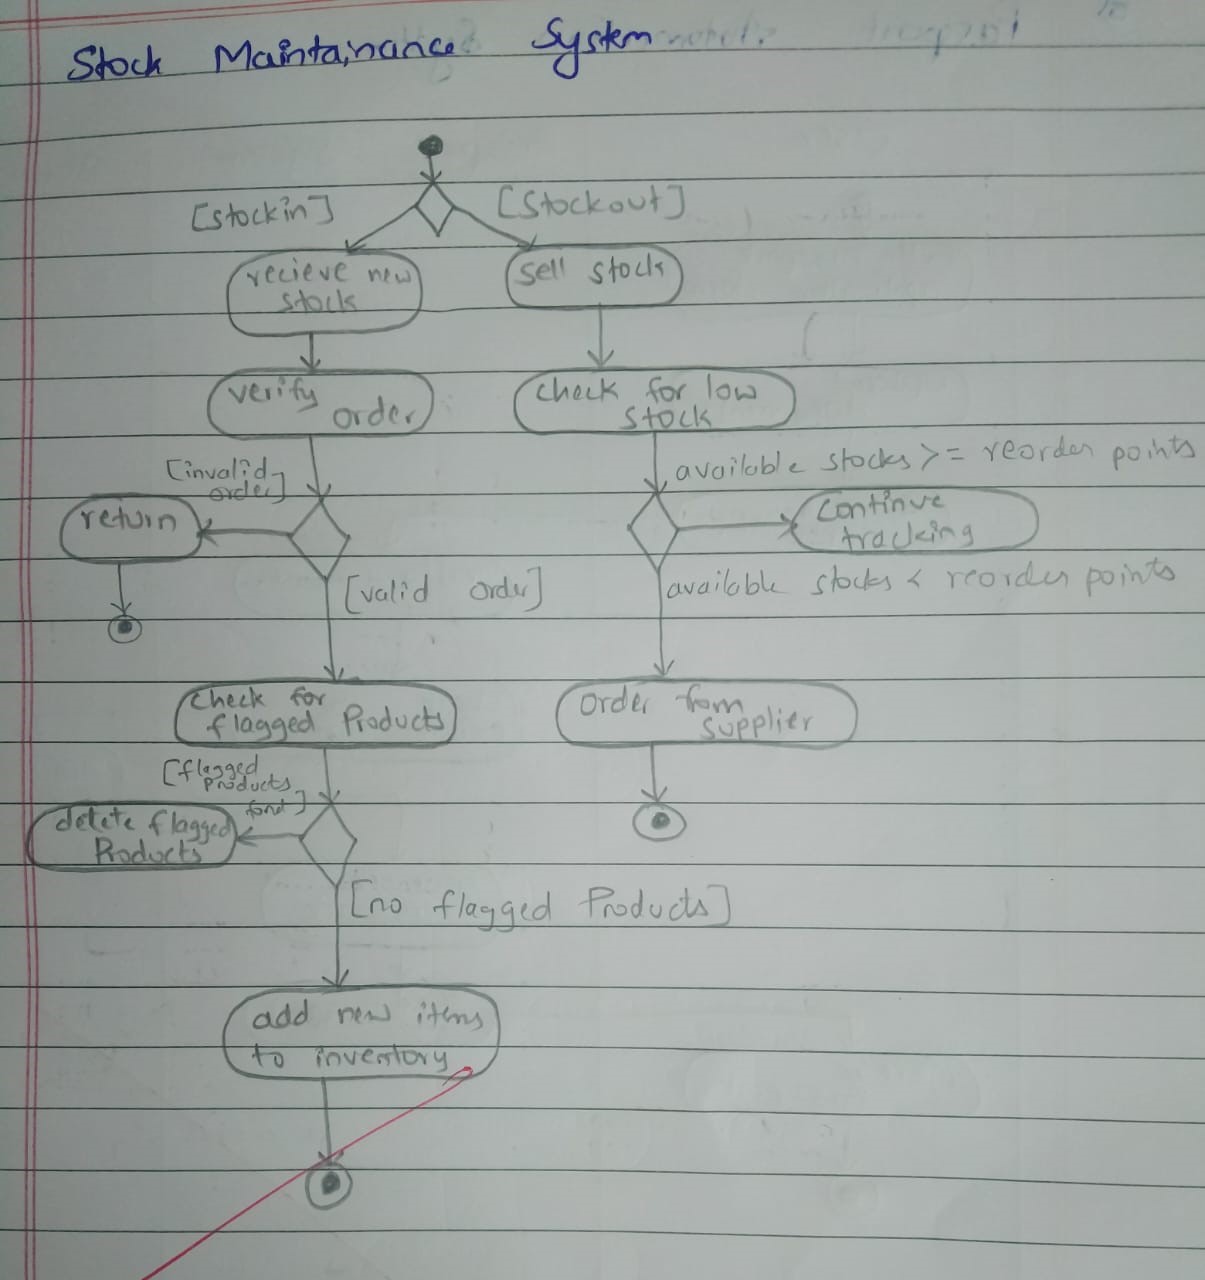 Stock Maintainance System
[stockin]
[Stockout]
recieve new
stock
sell stock
verify
order
check for low
stock
[invalid
order]
available stocks >= reorder points
return
continue
tracking
[valid order]
available stocks < reorder points
check for
flagged Products
order from
supplier
[flagged
Products
fond]
delete flagged
Products
[no flagged Products]
add new items
to inventory